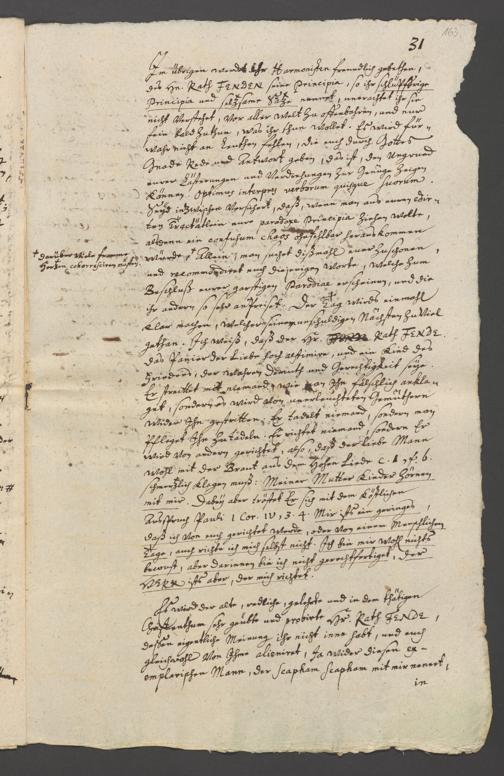 163
31
Im übrigen werdet ihr Harmonisten freundlich gebethen,
des Hn. Rath FENDEN seine Principia, so ihr schlüpffrige
Principia und seltzame Sätze nennet, unerachtet ihr sie
nicht verstehet, vor aller Welt zu offenbahren, und nur
kein Rad zuthun, was ihr thun wollet. Es wird für-
wahr nicht an Leuthen fehlen, die euch durch Gottes
Gnade Rede und Antwort geben, das ist, den Ungrund
eurer Lästerungen und Verdrehungen zur Genüge zeigen
können. Optimus interpres verborum quisque suorum.
Seyd inzwischen versichert, daß, wenn man aus euren edir-
ten Tractätlein eure paradoxe Principia ziehen wolte,
alsdenn ein confusum chaos ohnfehlbar heraus kommen
würde. † Allein, man suchet dißmahl eurer zu schonen,
† darüber viele fromme
Hertzen erschrecken
und recommendiret euch diejenigen Worte, welche zum
Beschluß eurer garstigen Parodiae erscheinen, und die
ihr andern so sehr anpreiset: Der Tag wirds einmahl
klar machen, welcher seinem unschuldigen Nächsten zuviel
gethan. Ich weiß, daß der Hr. Rath FENDE
das Panier der Liebe hoch aestimire, und ein Kind des
Friedens, der wahren Demuth und Gerechtigkeit seye.
Er streitet mit niemand, wie man Ihn fälschlich ankla-
get, sondern es wird von unerleuchteten Gemüthern
wider Ihn gestritten; Er tadelt niemand, sondern man
pfleget Ihn zu tadeln. Er richtet niemand, sondern Er
wird von andern gerichtet, also, daß der liebe Mann
wohl mit der Braut aus dem Hohen Liede c. 1. v. 6.
schmertzlich klagen muß: Meiner Mutter Kinder zörnen
mit mir. Dabey aber tröstet Er sich mit dem köstlichen
Ausspruch Pauli 1 Cor. IV, 3. 4. Mir ists ein geringes,
daß ich von euch gerichtet werde, oder von einem Menschlichen
Tage, auch richte ich mich selbst nicht. Ich bin mir wohl nichts
bewust, aber darinnen bin ich nicht gerechtfertiget, der
HERR ists aber, der mich richtet.
Es wird der alte, redliche, gelehrte und in dem thätigen
Christenthum sehr geübte und probirte Hr. Rath FENDE,
dessen eigentliche Meinung ihr nicht inne habt, und euch
gleichwohl von Ihme alieniret, Ja wider diesen ex-
emplarischen Mann, der scapham scapham mit mir nennet,
in